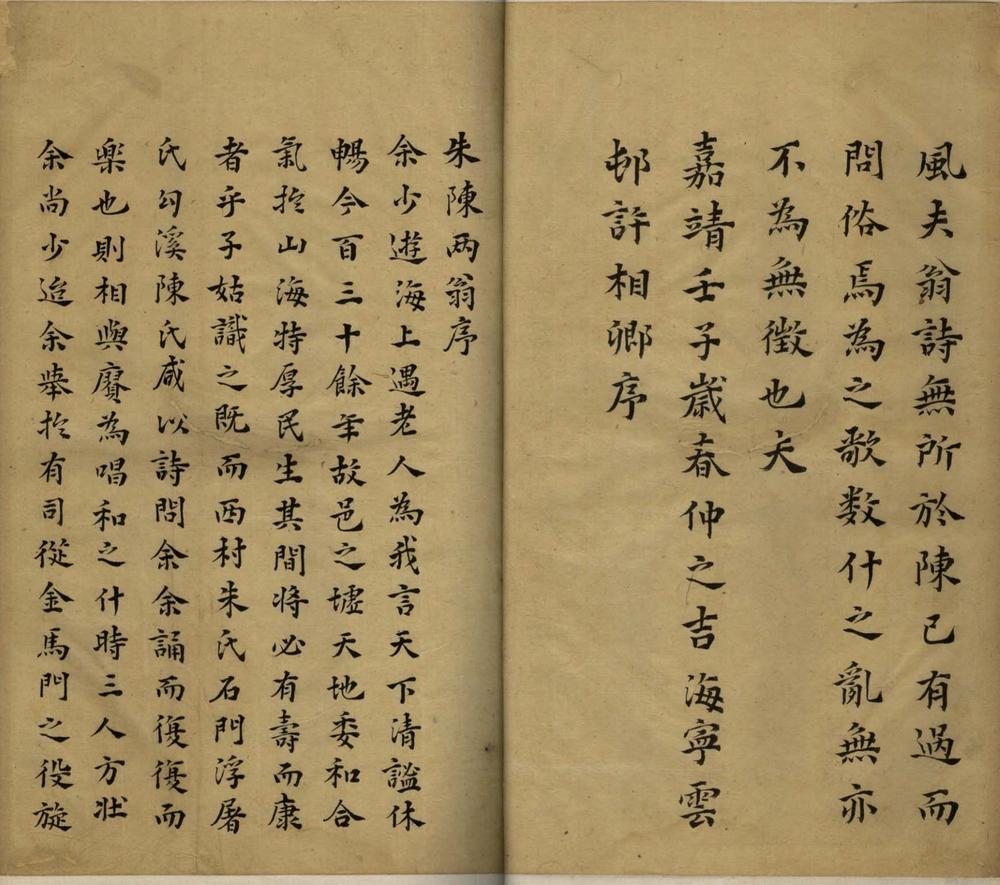 風夫翁詩無所於陳已有過而
問俗焉為之歌数什之亂無亦
不為無徵也夫
嘉靖壬子歲春仲之吉海寧雲
邨許相卿序
朱陳两翁序
余少遊海上遇老人為我言天下清謐休
暢今百三十餘年故邑之墟天地委和合
氣扵山海特厚民生其間將必有壽而康
者乎子姑識之既而西村朱氏石門浮屠
氏勾溪陳氏咸以詩問余余誦而復復而
楽也則相與賡為唱和之什時三人方壯
余尚少迨余舉扵有司從金馬門之役旋